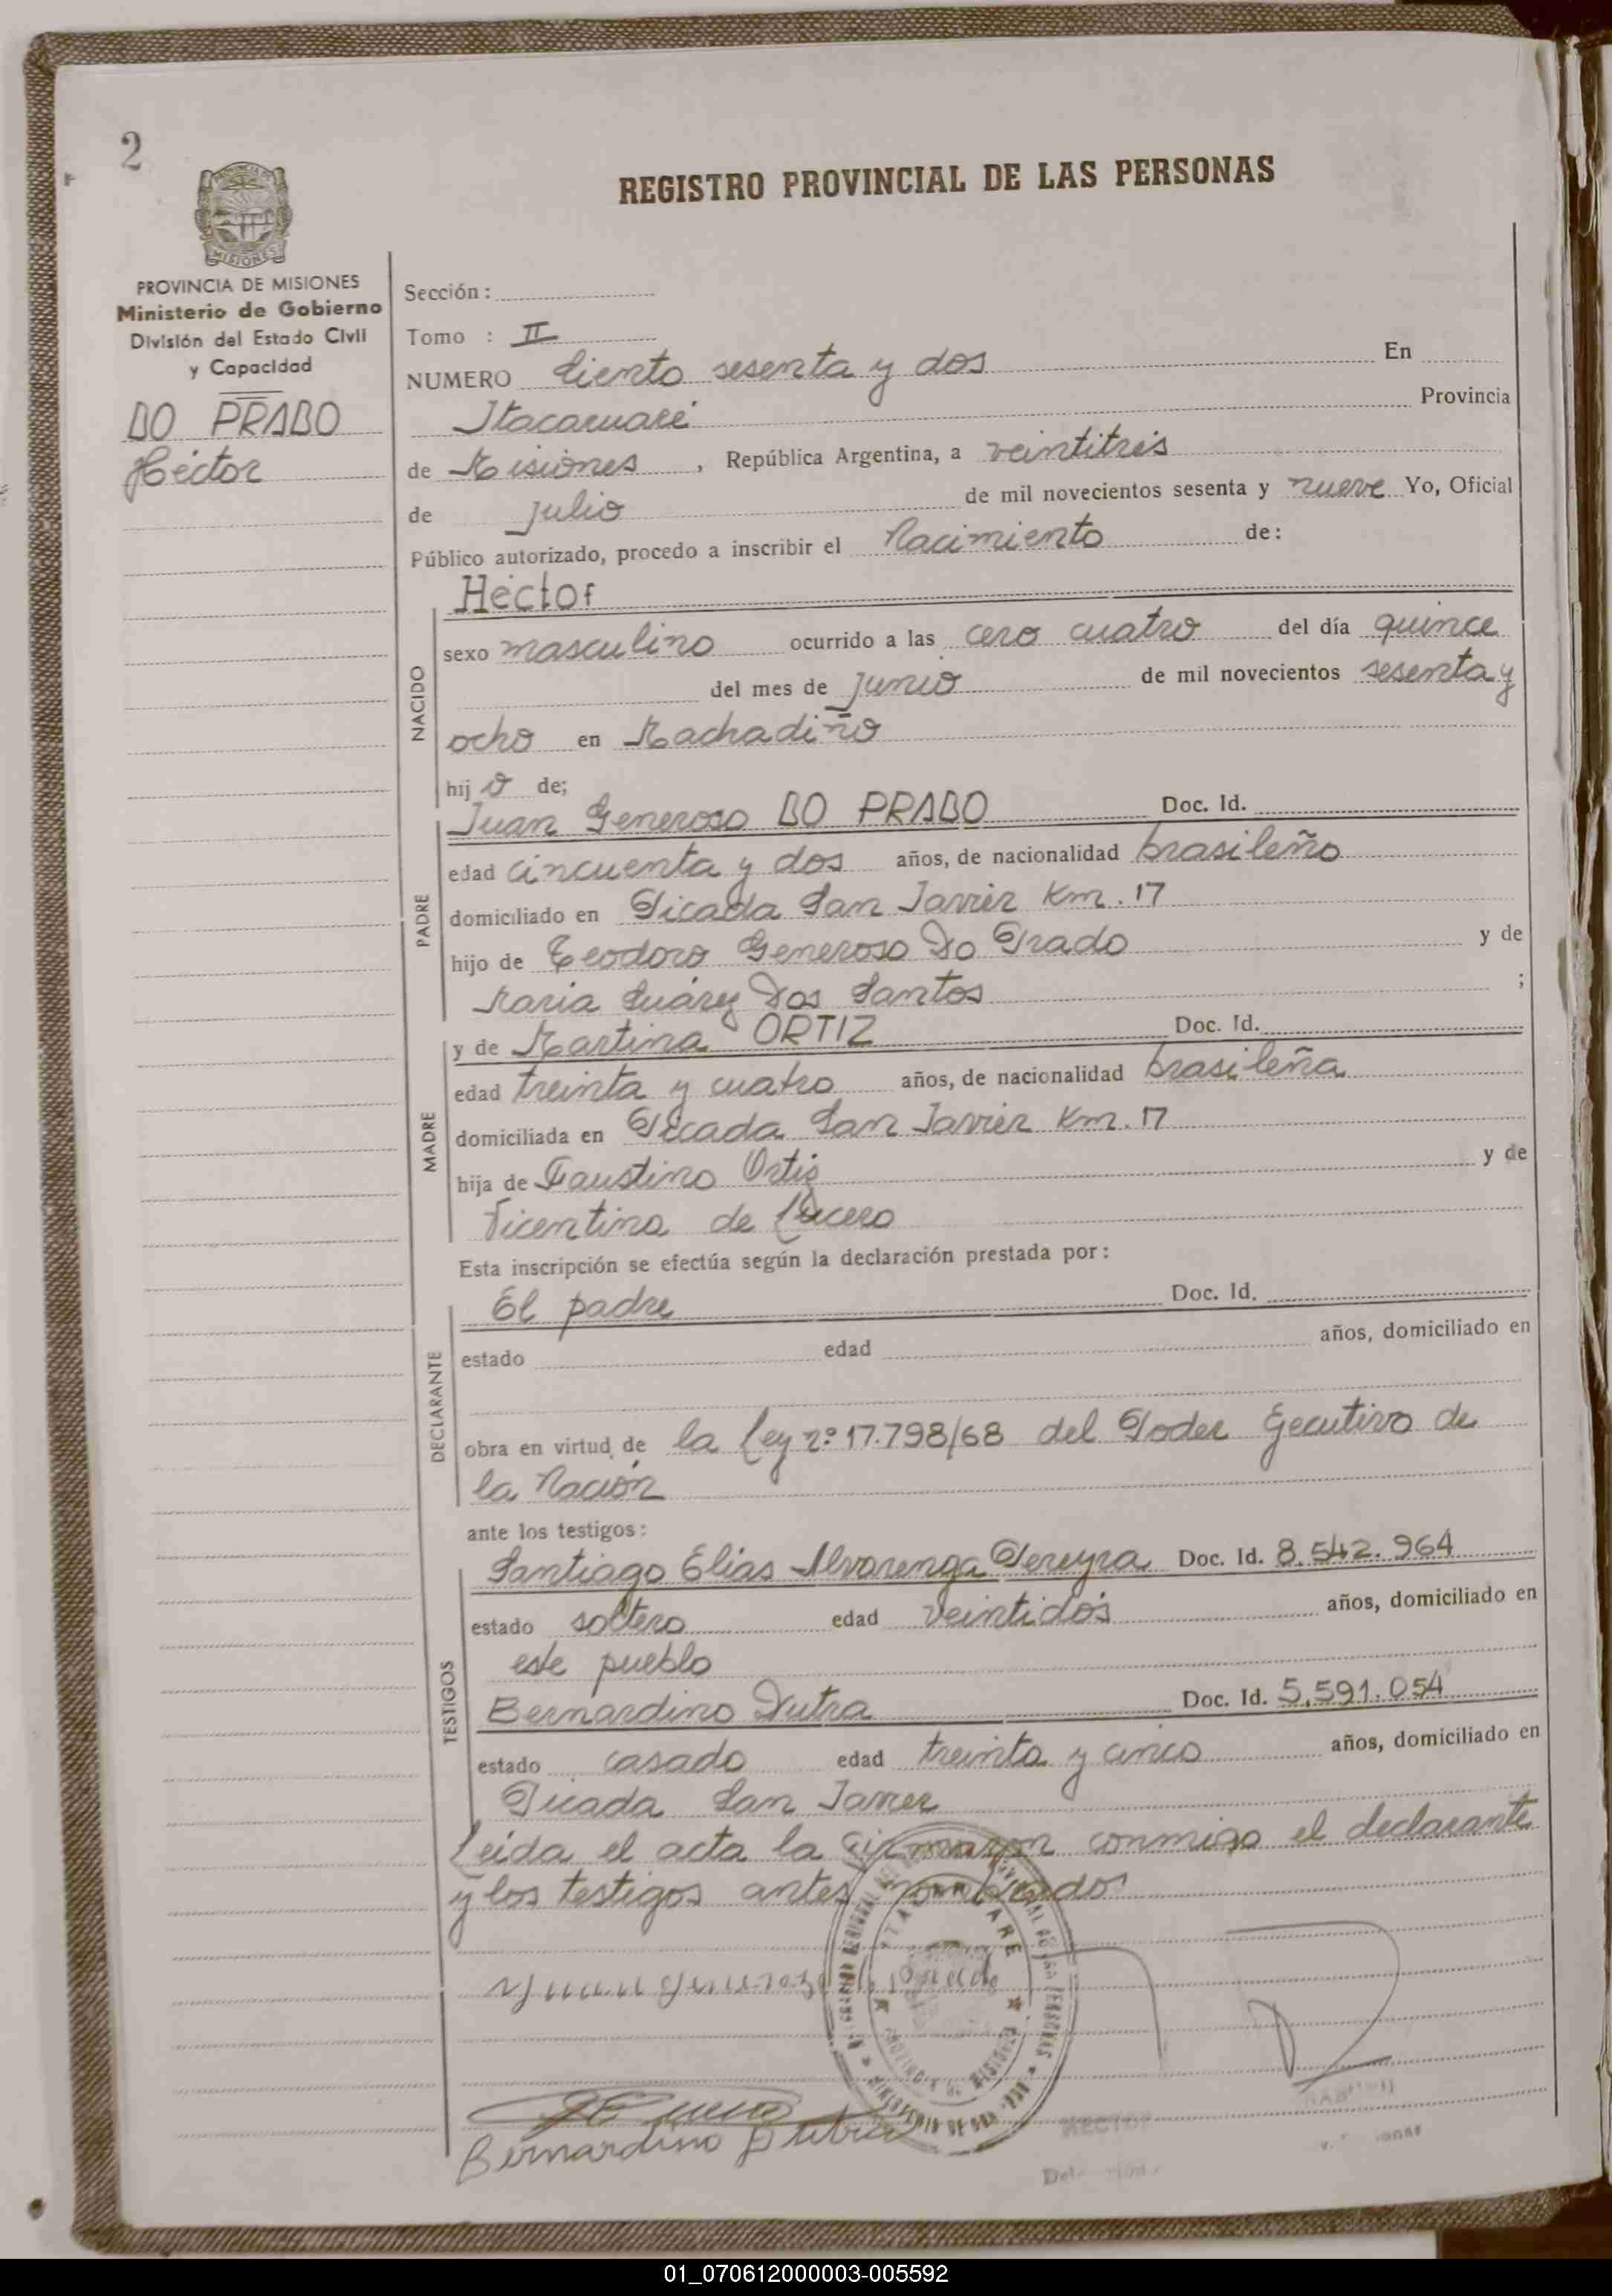 2
REGISTRO PROVINCIAL DE LAS PERSONAS
PROVINCIA DE MISIONES
Ministerio de Gobierno
División del Estado Civil
y Capacidad
DO PRADO
Héctor
Sección:
Tomo : II
NUMERO Ciento sesenta y dos En
Itacaruaré Provincia
de Misiones, República Argentina, a veintitrés
de julio de mil novecientos sesenta y nueve Yo, Oficial
Público autorizado, procedo a inscribir el Nacimiento de:
NACIDO
Héctor
sexo masculino ocurrido a las cero cuatro del día quince
del mes de junio de mil novecientos sesenta y
ocho en Machadiño
hijo de;
PADRE
Juan Generoso DO PRADO Doc. Id.
edad cincuenta y dos años, de nacionalidad brasileño
domiciliado en Picada San Javier Km. 17
hijo de Teodoro Generoso Do Prado y de
Maria Suárez Dos Santos ;
MADRE
y de Martina ORTIZ Doc. Id.
edad treinta y cuatro años, de nacionalidad brasileña
domiciliada en Picada San Javier Km. 17
hija de Faustino Ortiz y de
Vicentina de Lucero
Esta inscripción se efectúa según la declaración prestada por:
DECLARANTE
El padre Doc. Id.
estado edad años, domiciliado en
obra en virtud de la Ley nº 17.798/68 del Poder Ejecutivo de
la Nación
ante los testigos:
TESTIGOS
Santiago Elias Alvarenga Pereyra Doc. Id. 8.542.964
estado soltero edad veintidós años, domiciliado en
este pueblo
Bernardino Dutra Doc. Id. 5.591.054
estado casado edad treinta y cinco años, domiciliado en
Picada San Javier
Leida el acta la firmaron conmigo el declarante
y los testigos antes nombrados
Juan generozo do prado
Bernardino Dutra
HECTOR
01_070612000003-005592